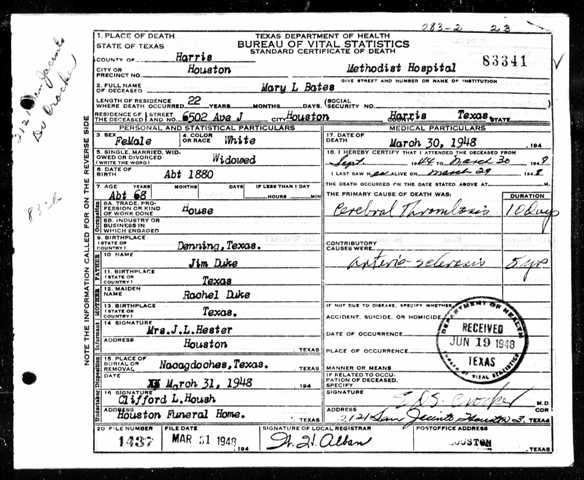 283-2 23
1. PLACE OF DEATH
STATE OF TEXAS
TEXAS DEPARTMENT OF HEALTH
BUREAU OF VITAL STATISTICS
STANDARD CERTIFICATE OF DEATH
83341
COUNTY OF Harris
CITY OR PRECINCT NO. Houston
Methodist Hospital
GIVE STREET AND NUMBER OR NAME OF INSTITUTION
2. FULL NAME OF DECEASED Mary L Bates
LENGTH OF RESIDENCE WHERE DEATH OCCURRED 22 YEARS MONTHS DAYS (SOCIAL SECURITY NO.
RESIDENCE OF THE DECEASED STREET AND NO. 6502 Ave J CITY Houston COUNTY Harris STATE Texas
PERSONAL AND STATISTICAL PARTICULARS
MEDICAL PARTICULARS
3. SEX FeMale 4. COLOR OR RACE White
17. DATE OF DEATH March 30, 1948 194
5. SINGLE, MARRIED, WIDOWED OR DIVORCED (WRITE THE WORD) Widowed
18. I HEREBY CERTIFY THAT I ATTENDED THE DECEASED FROM
Sept 1946 TO March 30 1948
6. DATE OF BIRTH Abt 1880
I LAST SAW ALIVE ON March 29 1948
7. AGE YEARS MONTHS DAYS IF LESS THAN 1 DAY
Abt 68 HOURS MIN
THE DEATH OCCURRED ON THE DATE STATED ABOVE AT M.
8A. TRADE, PROFESSION OR KIND OF WORK DONE House
THE PRIMARY CAUSE OF DEATH WAS: DURATION
Cerebral Thrombosis 10 days
8B. INDUSTRY OR BUSINESS IN WHICH ENGAGED
9. BIRTHPLACE (STATE OR COUNTRY) Denning, Texas.
CONTRIBUTORY CAUSES WERE:
10. NAME Jim Duke
Arterio-sclerosis 5 yrs
11. BIRTHPLACE (STATE OR COUNTRY) Texas
12. MAIDEN NAME Rachel Duke
13. BIRTHPLACE (STATE OR COUNTRY) Texas.
IF NOT DUE TO DISEASE, SPECIFY WHETHER:
ACCIDENT, SUICIDE, OR HOMICIDE
14. SIGNATURE Mrs.J.L.Hester
DATE OF OCCURRENCE
ADDRESS Houston TEXAS
PLACE OF OCCURRENCE
15. PLACE OF BURIAL OR REMOVAL Nacogdoches, Texas TEXAS
MANNER OR MEANS
DATE March 31, 1948 194
IF RELATED TO OCCUPATION OF DECEASED, SPECIFY
16. SIGNATURE Clifford L.Housh
SIGNATURE M.D.
ADDRESS Houston Funeral Home. TEXAS
ADDRESS 2121 San Jacinto Houston 3. TEXAS
20. FILE NUMBER FILE DATE SIGNATURE OF LOCAL REGISTRAR POSTOFFICE ADDRESS
1437 MAR 31 1948 194 HOUSTON TEXAS
DEPARTMENT OF HEALTH
RECEIVED
JUN 19 1948
TEXAS
BUREAU OF VITAL STATISTICS
NOTE THE INFORMATION CALLED FOR ON THE REVERSE SIDE
2121 San Jacinto
Dr Crocker